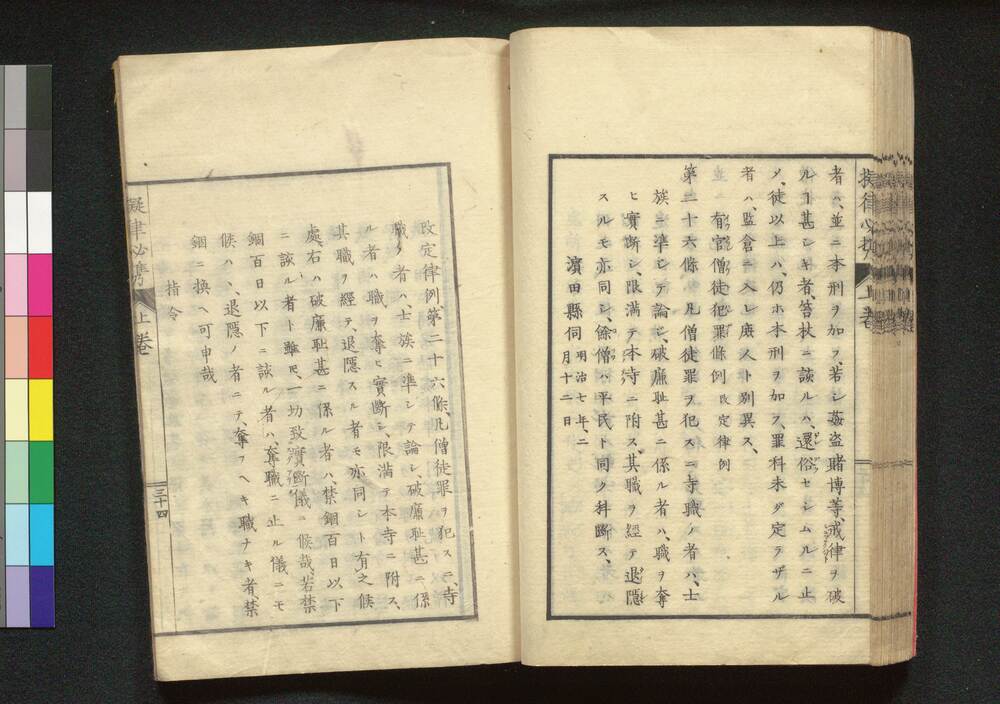 者ハ、並ニ本刑ヲ加フ、若シ姦盗賭博等、戒律ヲ破
ルヿ甚シキ者、笞杖ニ該ルハ、還俗セシムルニ止
メ、徒以上ハ、仍ホ本刑ヲ加フ、罪科未ダ定ラザル
者ハ、監倉ニ入レ庶人ト別異ス、
有官僧徒犯罪條例 改定律例
第二十六條 凡僧徒罪ヲ犯スニ寺職ノ者ハ、士
族ニ準シテ論シ、破廉耻甚ニ係ル者ハ、職ヲ奪
ヒ實斷シ、限滿テ本寺ニ附ス、其職ヲ經テ退隱
スルモ亦同シ、餘僧ハ平民ト同ク科斷ス、
濱田縣伺 明治七年二月十二日
改定律例第二十六條、凡僧徒罪ヲ犯スニ、寺
職ノ者ハ、士族ニ準シテ論シ破廉耻甚ニ係
ル者ハ職ヲ奪ヒ實斷シ、限滿テ本寺ニ附ス、
其職ヲ經テ、退隱スル者モ亦同シト有之候
處、右ハ破廉耻甚ニ係ル者ハ、禁錮百日以下
ニ該ル者ト雖モ、一切致實斷儀ニ候哉、若禁
錮百日以下ニ該ル者ハ、奪職ニ止ル儀ニモ
候ハヽ、退隱ノ者ニテ、奪フヘキ職ナキ者、禁
錮ニ換ヘ可申哉
指令
擬律必携 上卷
三十四